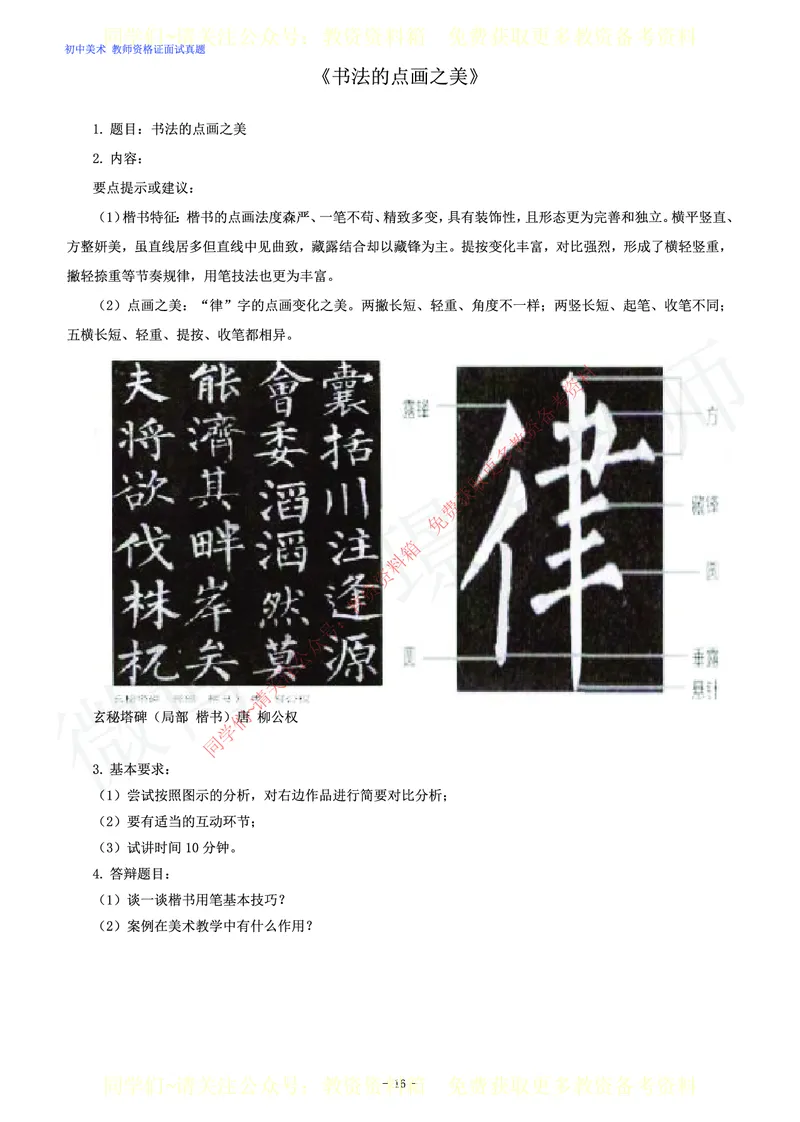 同学们~请关注公众号：教资资料箱  免费获取更多教资备考资料
初中美术 教师资格证面试真题
《书法的点画之美》
1. 题目：书法的点画之美
2. 内容：
要点提示或建议：
（1）楷书特征：楷书的点画法度森严、一笔不苟、精致多变，具有装饰性，且形态更为完善和独立。横平竖直、
方整妍美，虽直线居多但直线中见曲致，藏露结合却以藏锋为主。提按变化丰富，对比强烈，形成了横轻竖重，
撇轻捺重等节奏规律，用笔技法也更为丰富。
（2）点画之美：“律”字的点画变化之美。两撇长短、轻重、角度不一样；两竖长短、起笔、收笔不同；
五横长短、轻重、提按、收笔都相异。
囊括川注逢源
會委滔滔然莫
能濟其畔岸矣
夫將欲伐株杌
律
露锋
方
藏锋
圆
圆
垂露
悬针
玄秘塔碑（局部 楷书）唐 柳公权
同学们~请关注公众号：教资资料箱 免费获取更多教资备考资料
3. 基本要求：
（1）尝试按照图示的分析，对右边作品进行简要对比分析；
（2）要有适当的互动环节；
（3）试讲时间 10 分钟。
4. 答辩题目：
（1）谈一谈楷书用笔基本技巧？
（2）案例在美术教学中有什么作用？
- 16 -
同学们~请关注公众号：教资资料箱  免费获取更多教资备考资料